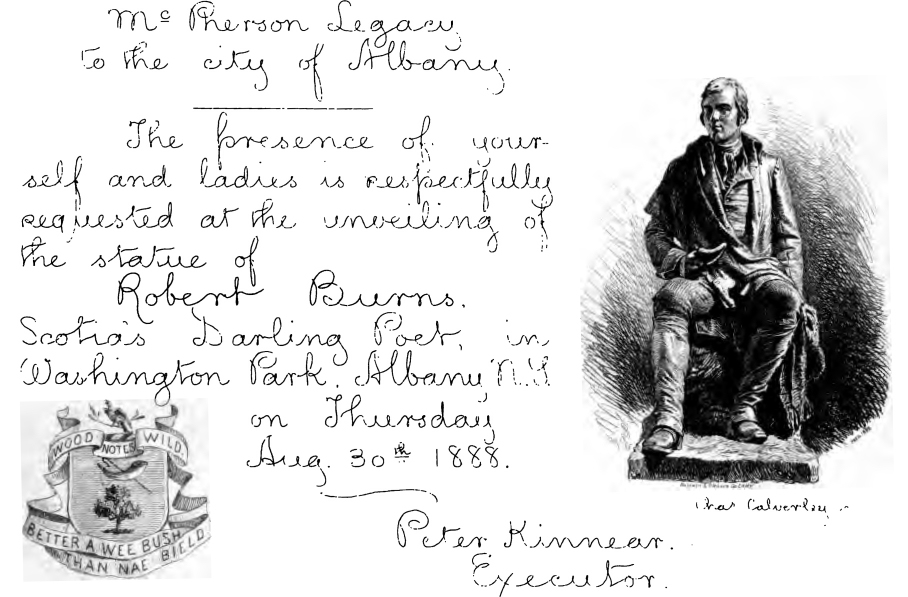 Mc Pherson Legacy
to the city of Albany.
The presence of your-
self and ladies is respectfully
requested at the unveiling of
the statue of
Robert Burns.
Scotia's Darling Poet, in
Washington Park, Albany N.Y.
on Thursday
Aug. 30th 1888.
Peter Kinnear.
Executor.
WOOD NOTES WILD.
BETTER A WEE BUSH
THAN NAE BIELD
Chas Calverley